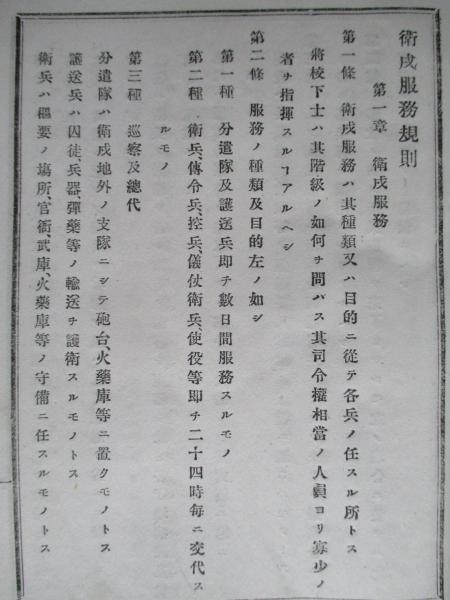 衛戍服務規則
第一章 衛戍服務
第一條 衛戍服務ハ其種類又ハ目的ニ從テ各兵ノ任スル所トス
將校下士ハ其階級ノ如何ヲ問バス其司令權相當ノ人員ヨリ寡少ノ
者ヲ指揮スルヿアルヘシ
第二條 服務ノ種類及目的左ノ如シ
第一種 分遣隊及護送兵即チ數日間服務スルモノ
第二種 衛兵、傳令兵、控兵、儀仗衛兵、使役等即チ二十四時每ニ交代ス
ルモノ
第三種 巡察及總代
分遣隊ハ衛戍地外ノ支隊ニシテ砲台、火藥庫等ニ置クモノトス
護送兵ハ囚徒、兵器、彈藥等ノ輸送ヲ護衛スルモノトス
衛兵ハ樞要ノ塲所、官衙、武庫、火藥庫等ノ守備ニ任スルモノトス